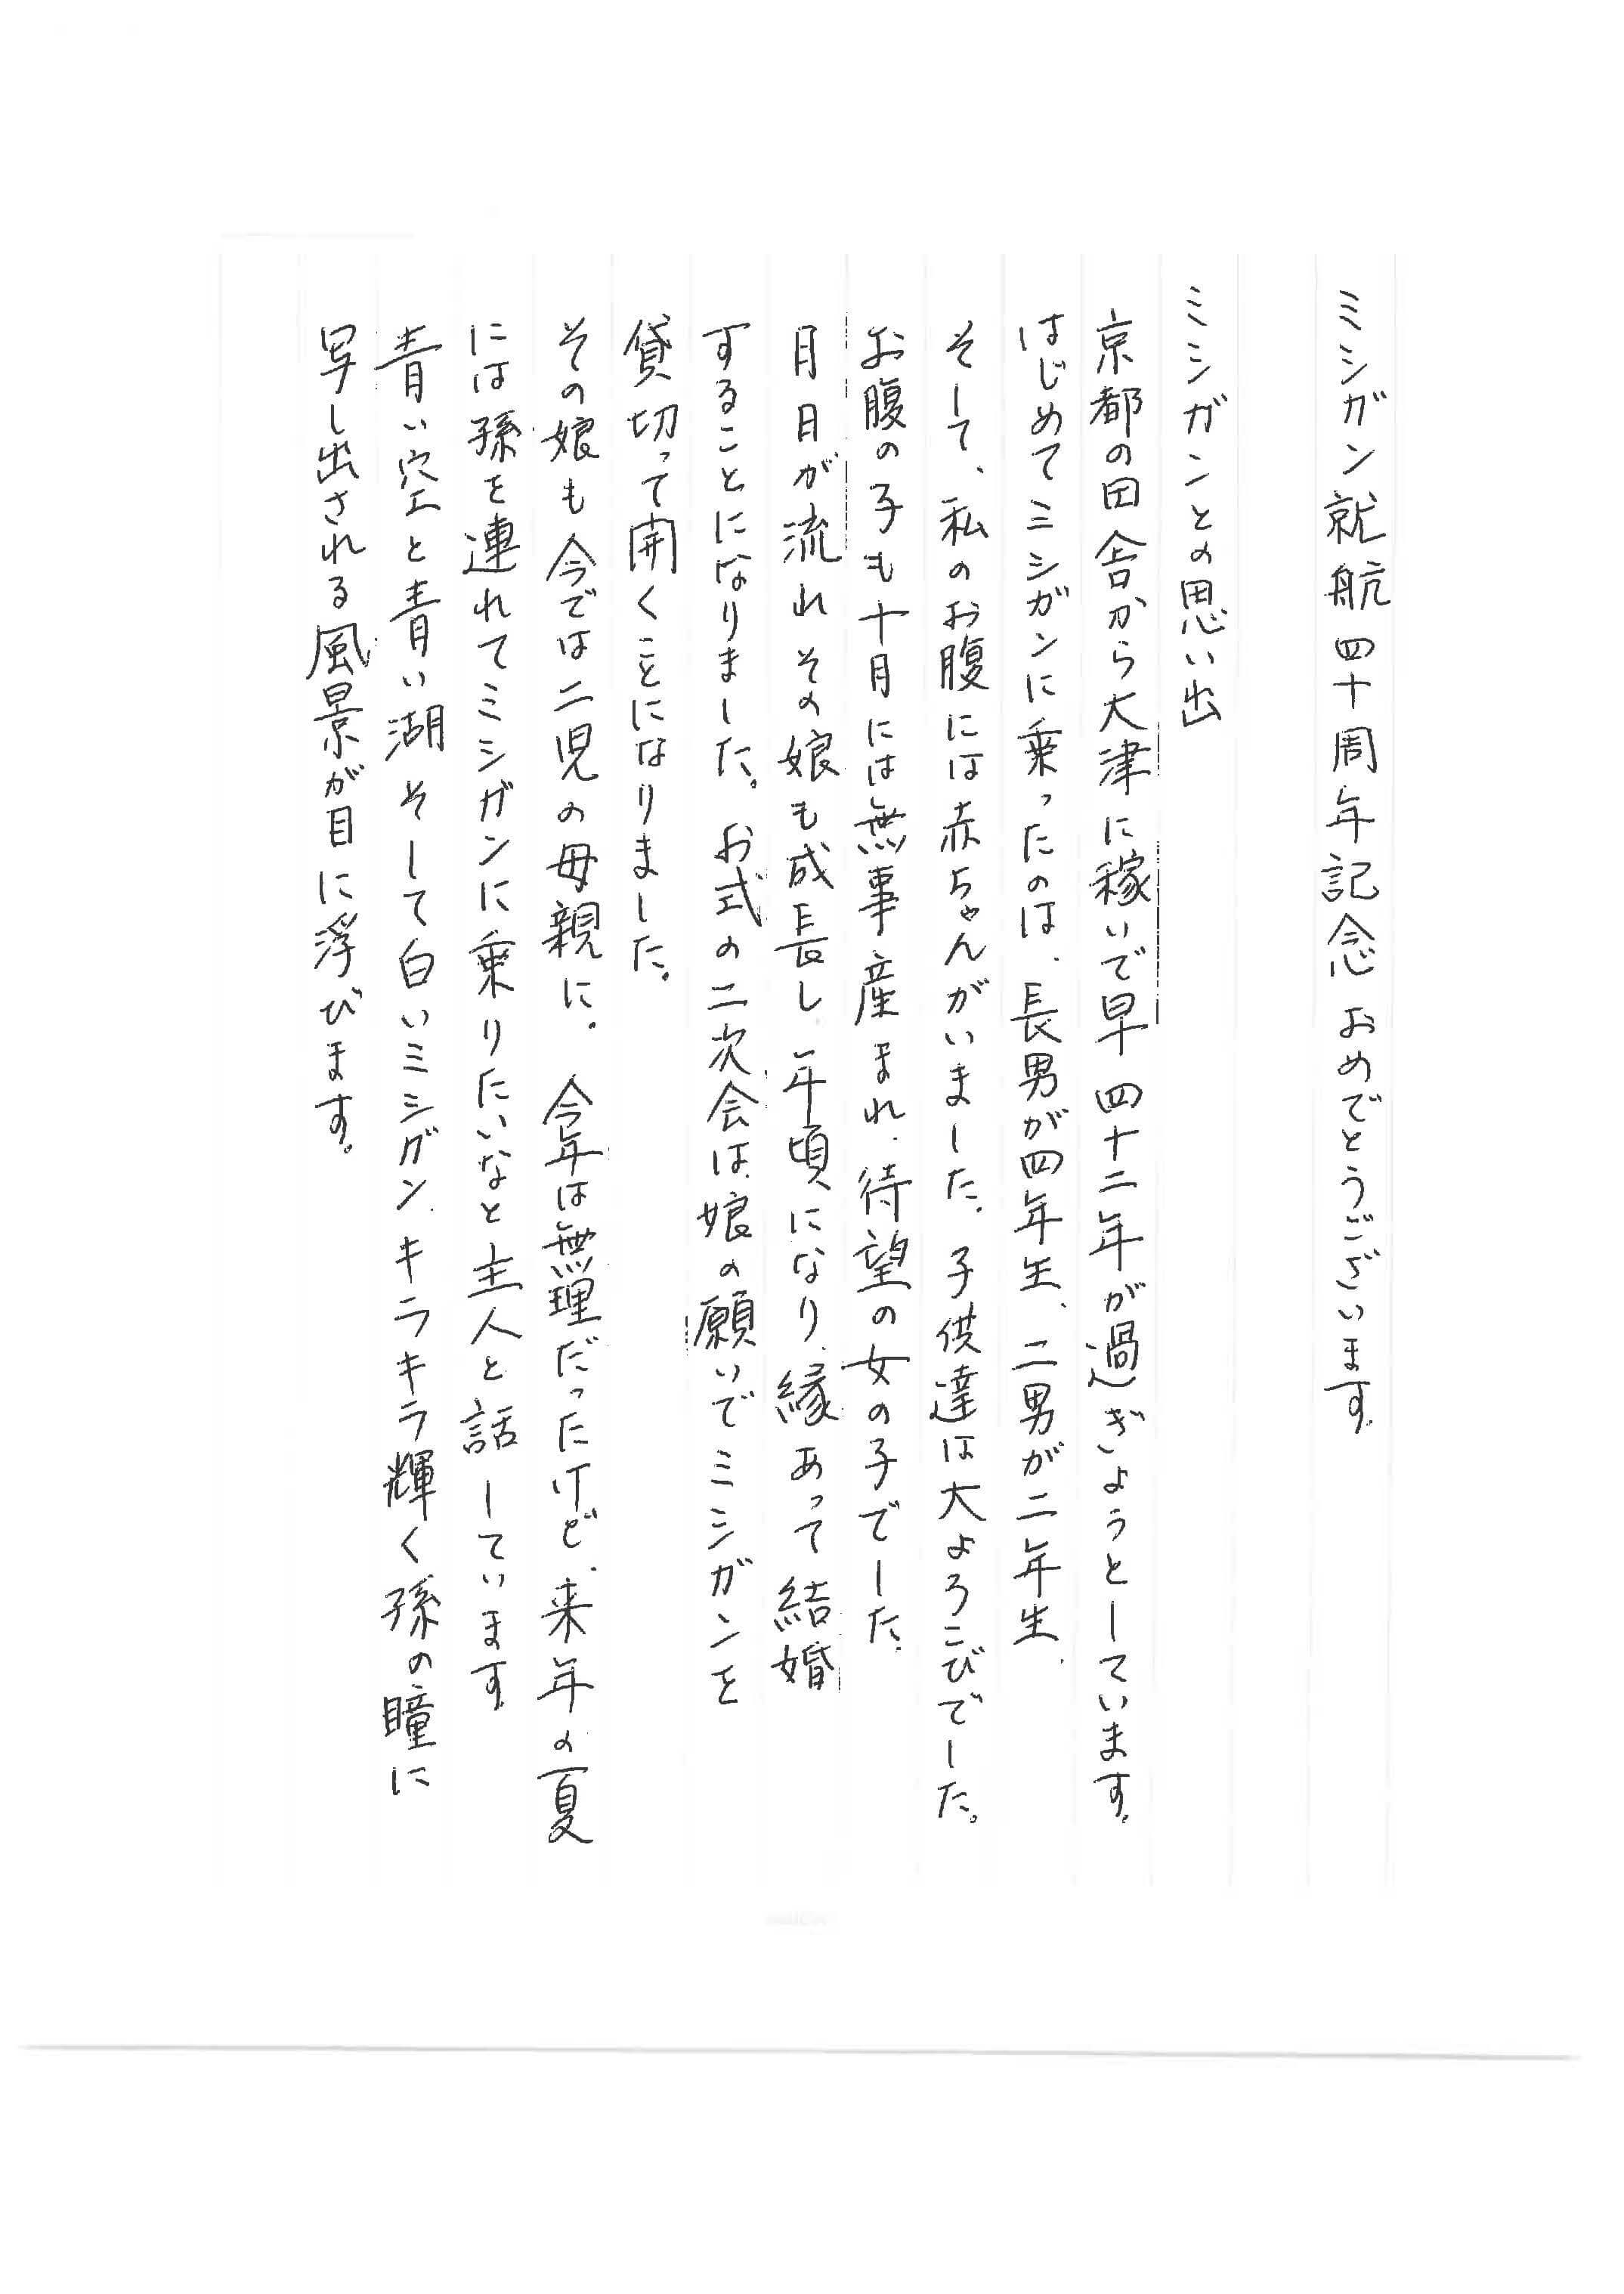 ミシガン就航四十周年記念 おめでとうございます。
ミシガンとの思い出
京都の田舎から大津に稼いで早四十二年が過ぎようとしています。
はじめてミシガンに乗ったのは、長男が四年生、二男が二年生、
そして、私のお腹には赤ちゃんがいました。子供達は大よろこびでした。
お腹の子も十月には無事産まれ、待望の女の子でした。
月日が流れその娘も成長し、年頃になり、縁あって結婚
することになりました。お式の二次会は、娘の願いでミシガンを
貸切って開くことになりました。
その娘も今では二児の母親に。今年は無理だったけど、来年の夏
には孫を連れてミシガンに乗りたいなと主人と話しています。
青い空と青い湖そして白いミシガン、キラキラ輝く孫の瞳に
写し出される風景が目に浮びます。